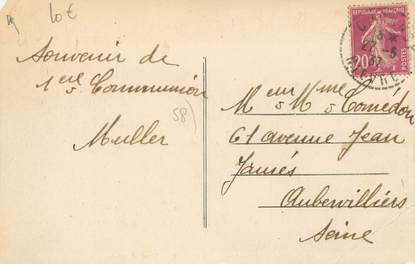 10€
Souvenir de
1ere Communion
Muller
58)
REPUBLIQUE FRANCAISE
20c
NIEVRE
Meur & Mme Comédon
61 avenue Jean
Jaurés
Aubervilliers
Seine